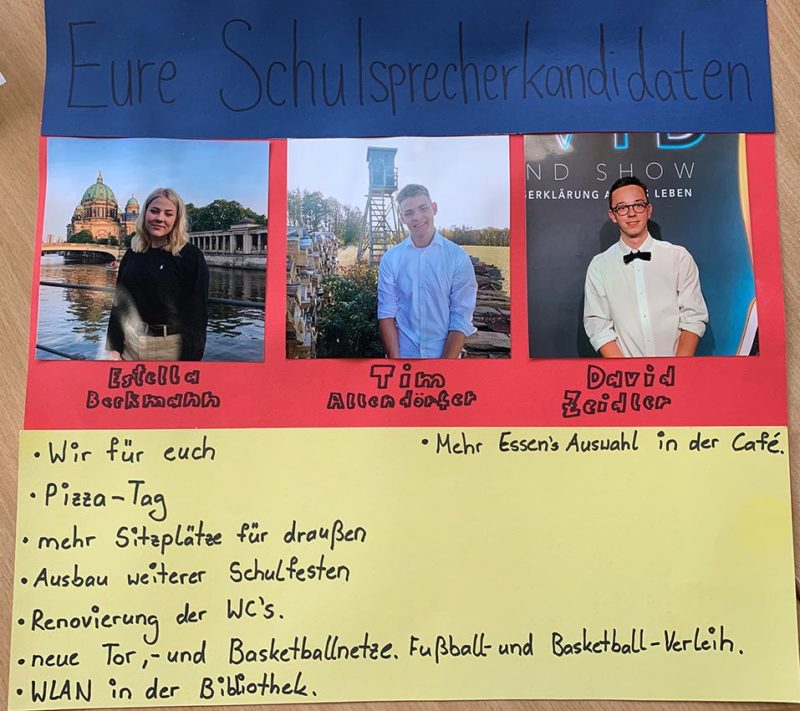 Eure Schulsprecherkandidaten
ND SHOW
LEBEN
Estella
Berkmann
Tim
Allendörfer
David
Zeidler
• Wir für euch
• Mehr Essen's Auswahl in der Café.
• Pizza-Tag
• mehr Sitzplätze für draußen
• Ausbau weiterer Schulfesten
• Renovierung der WC's.
• neue Tor,- und Basketballnetze. Fußball- und Basketball-Verleih.
• WLAN in der Bibliothek.